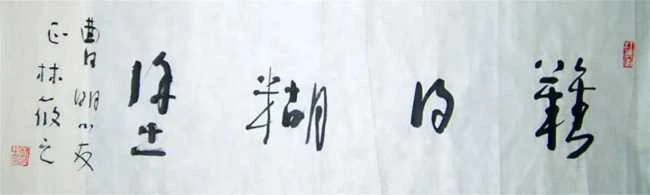 難得糊塗
曹明小友
正林筱之